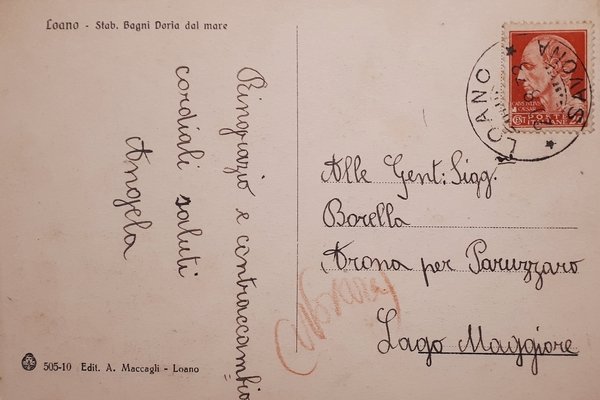 Loano - Stab. Bagni Doria dal mare
Ringrazio e contraccambio
cordiali saluti
Angela
Alle Gent: Sigg.
Borella
Arona per Paruzzaro
Lago Maggiore
LOANO
SAVONA
POSTE
ITALIANE
505-10 Edit. A. Maccagli - Loano